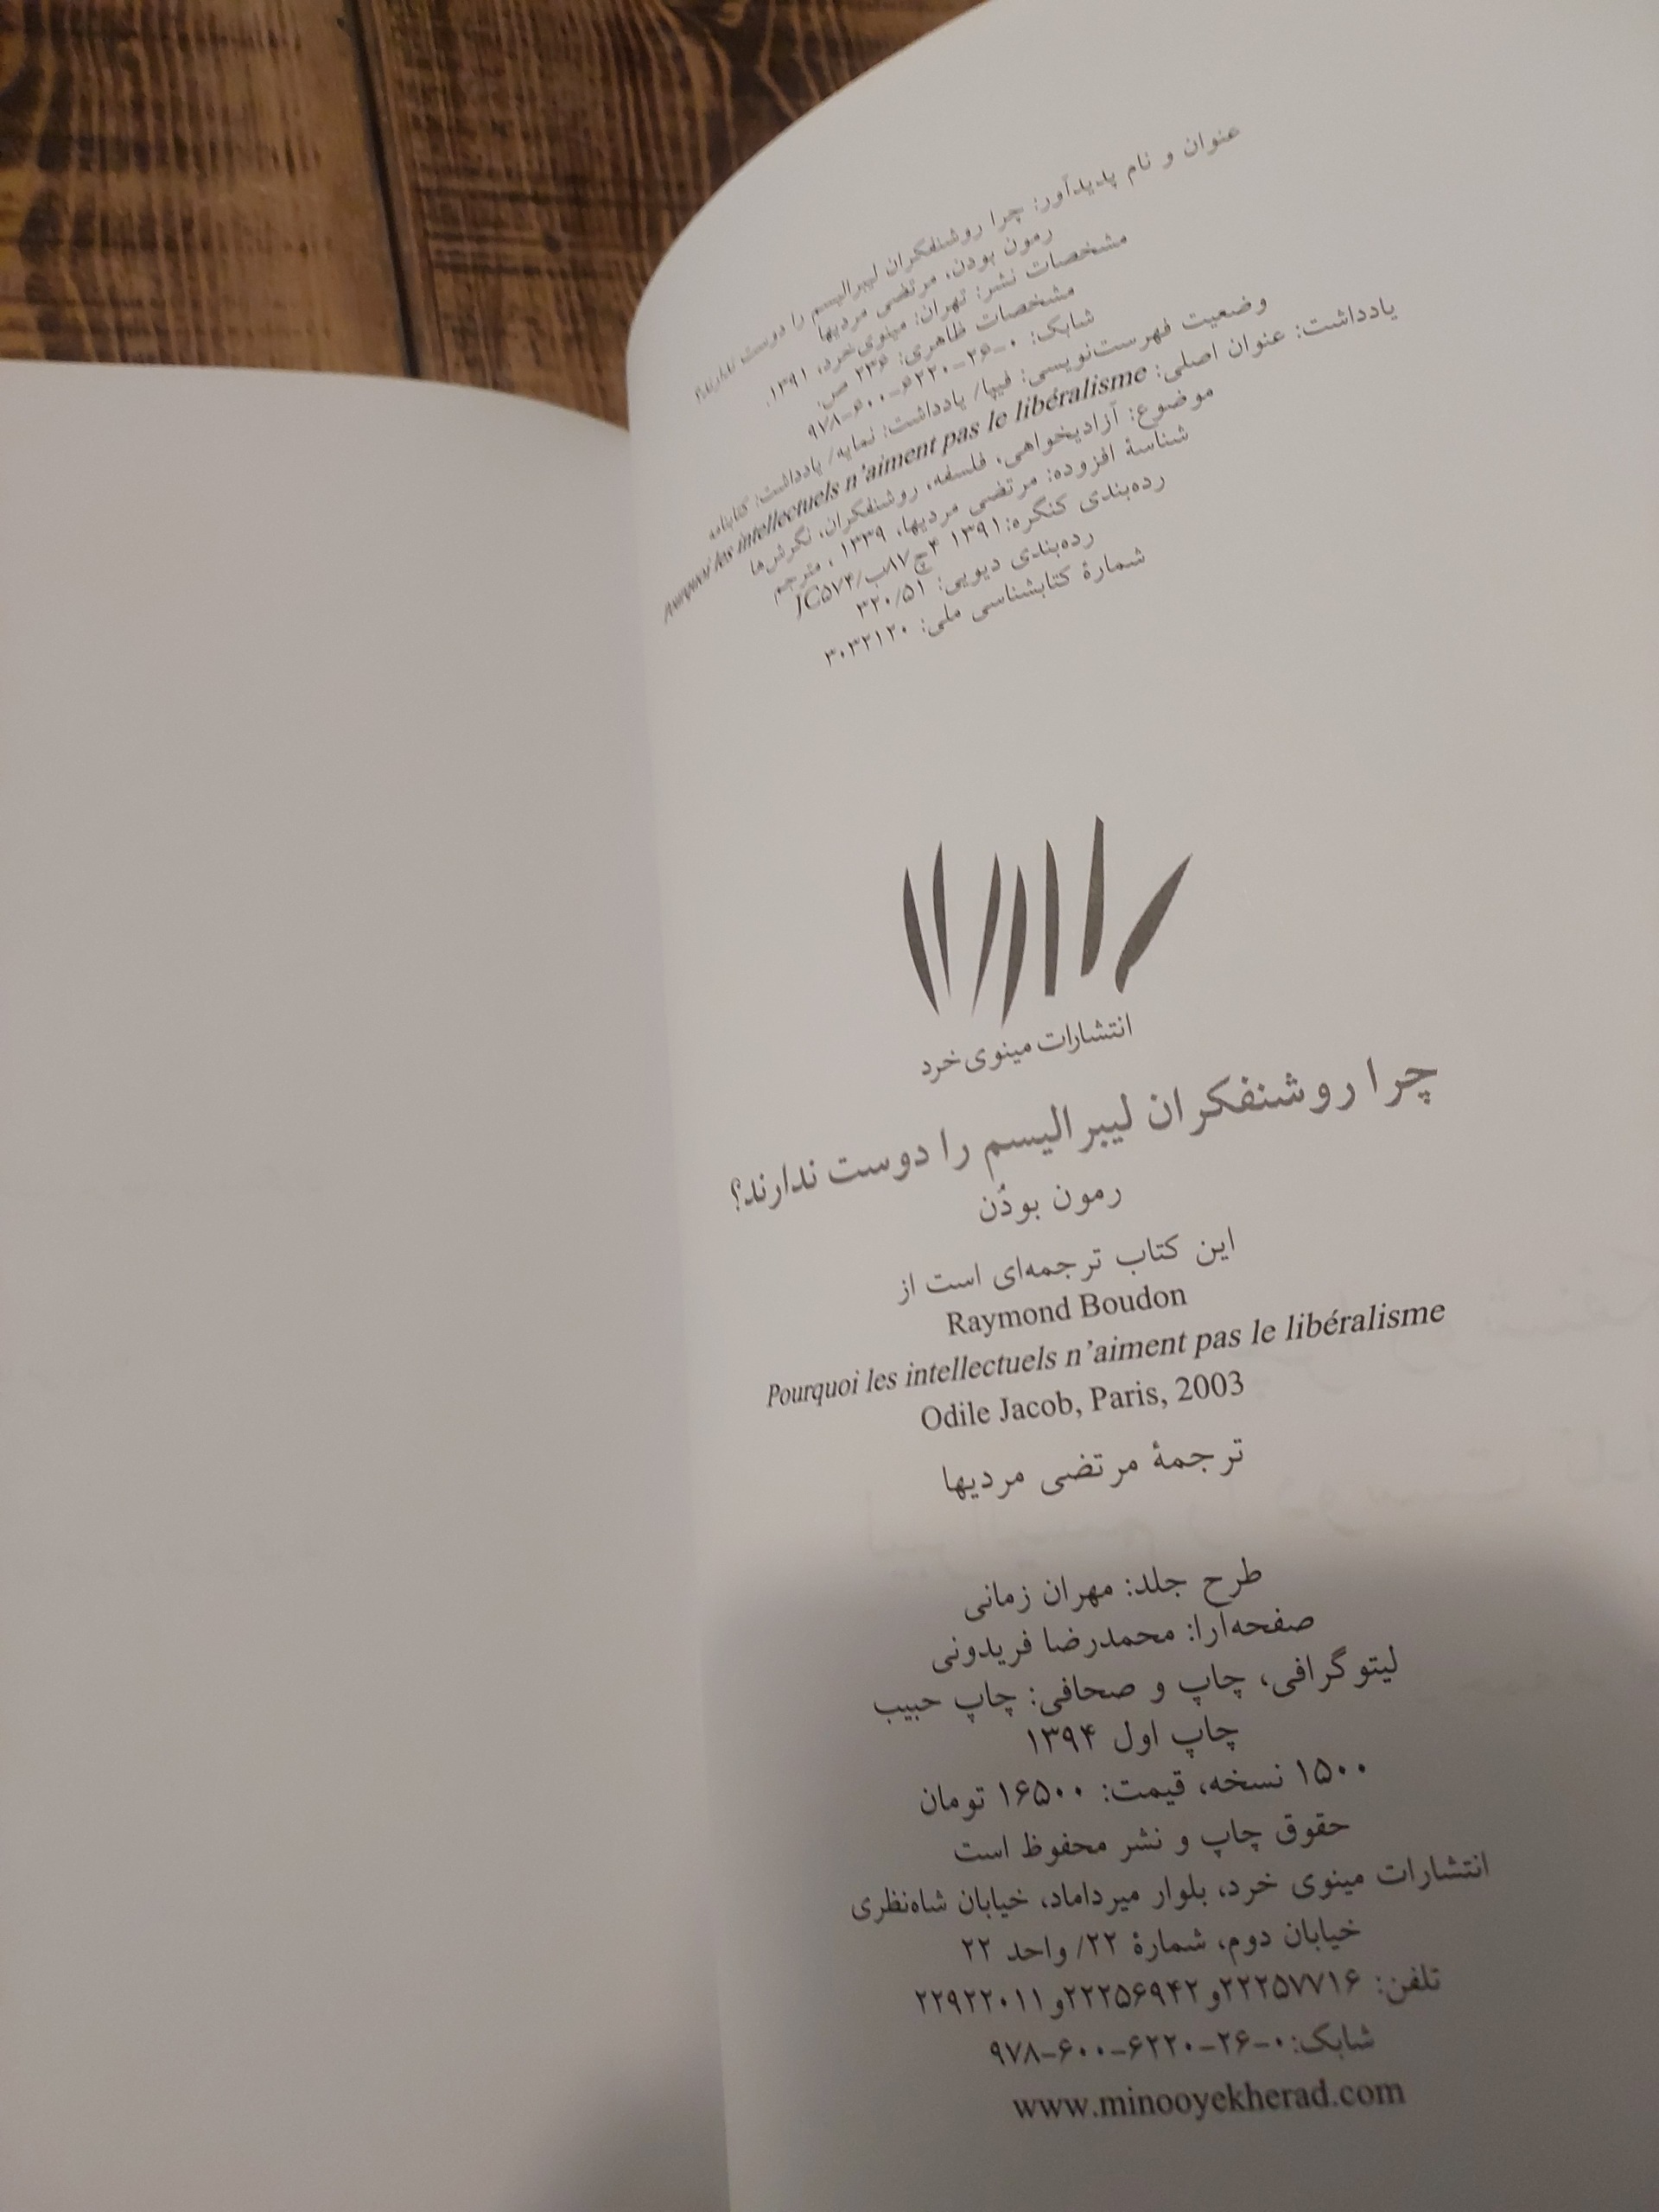 عنوان و نام پدیدآور: چرا روشنفکران لیبرالیسم را دوست ندارند؟
رمون بودن، مرتضی مردیها
مشخصات نشر: تهران: مینوی‌خرد، ۱۳۹۱.
مشخصات ظاهری: ۲۳۶ ص.
شابک: ۰-۲۶-۶۲۲۰-۶۰۰-۹۷۸
وضعیت فهرست‌نویسی: فیپا/ یادداشت: نمایه/ یادداشت: کتابنامه
یادداشت: عنوان اصلی: Pourquoi les intellectuels n’aiment pas le libéralisme
موضوع: آزادیخواهی، فلسفه، روشنفکران، نگرش‌ها
شناسهٔ افزوده: مرتضی مردیها، ۱۳۳۹ ، مترجم
رده‌بندی کنگره: ۱۳۹۱ ۴چ۸۷ب/JC۵۷۴
رده‌بندی دیویی: ۳۲۰/۵۱
شمارهٔ کتابشناسی ملی: ۳۰۳۲۱۲۰
انتشارات مینوی‌خرد
چرا روشنفکران لیبرالیسم را دوست ندارند؟
رمون بودُن
این کتاب ترجمه‌ای است از
Raymond Boudon
Pourquoi les intellectuels n’aiment pas le libéralisme
Odile Jacob, Paris, 2003
ترجمهٔ مرتضی مردیها
طرح جلد: مهران زمانی
صفحه‌آرا: محمدرضا فریدونی
لیتوگرافی، چاپ و صحافی: چاپ حبیب
چاپ اول ۱۳۹۴
۱۵۰۰ نسخه، قیمت: ۱۶۵۰۰ تومان
حقوق چاپ و نشر محفوظ است
انتشارات مینوی خرد، بلوار میرداماد، خیابان شاه‌نظری
خیابان دوم، شمارهٔ ۲۲/ واحد ۲۲
تلفن: ۲۲۲۵۷۷۱۶و۲۲۲۵۶۹۴۲و۲۲۹۲۲۰۱۱
شابک:۰-۲۶-۶۲۲۰-۶۰۰-۹۷۸
www.minooyekherad.com